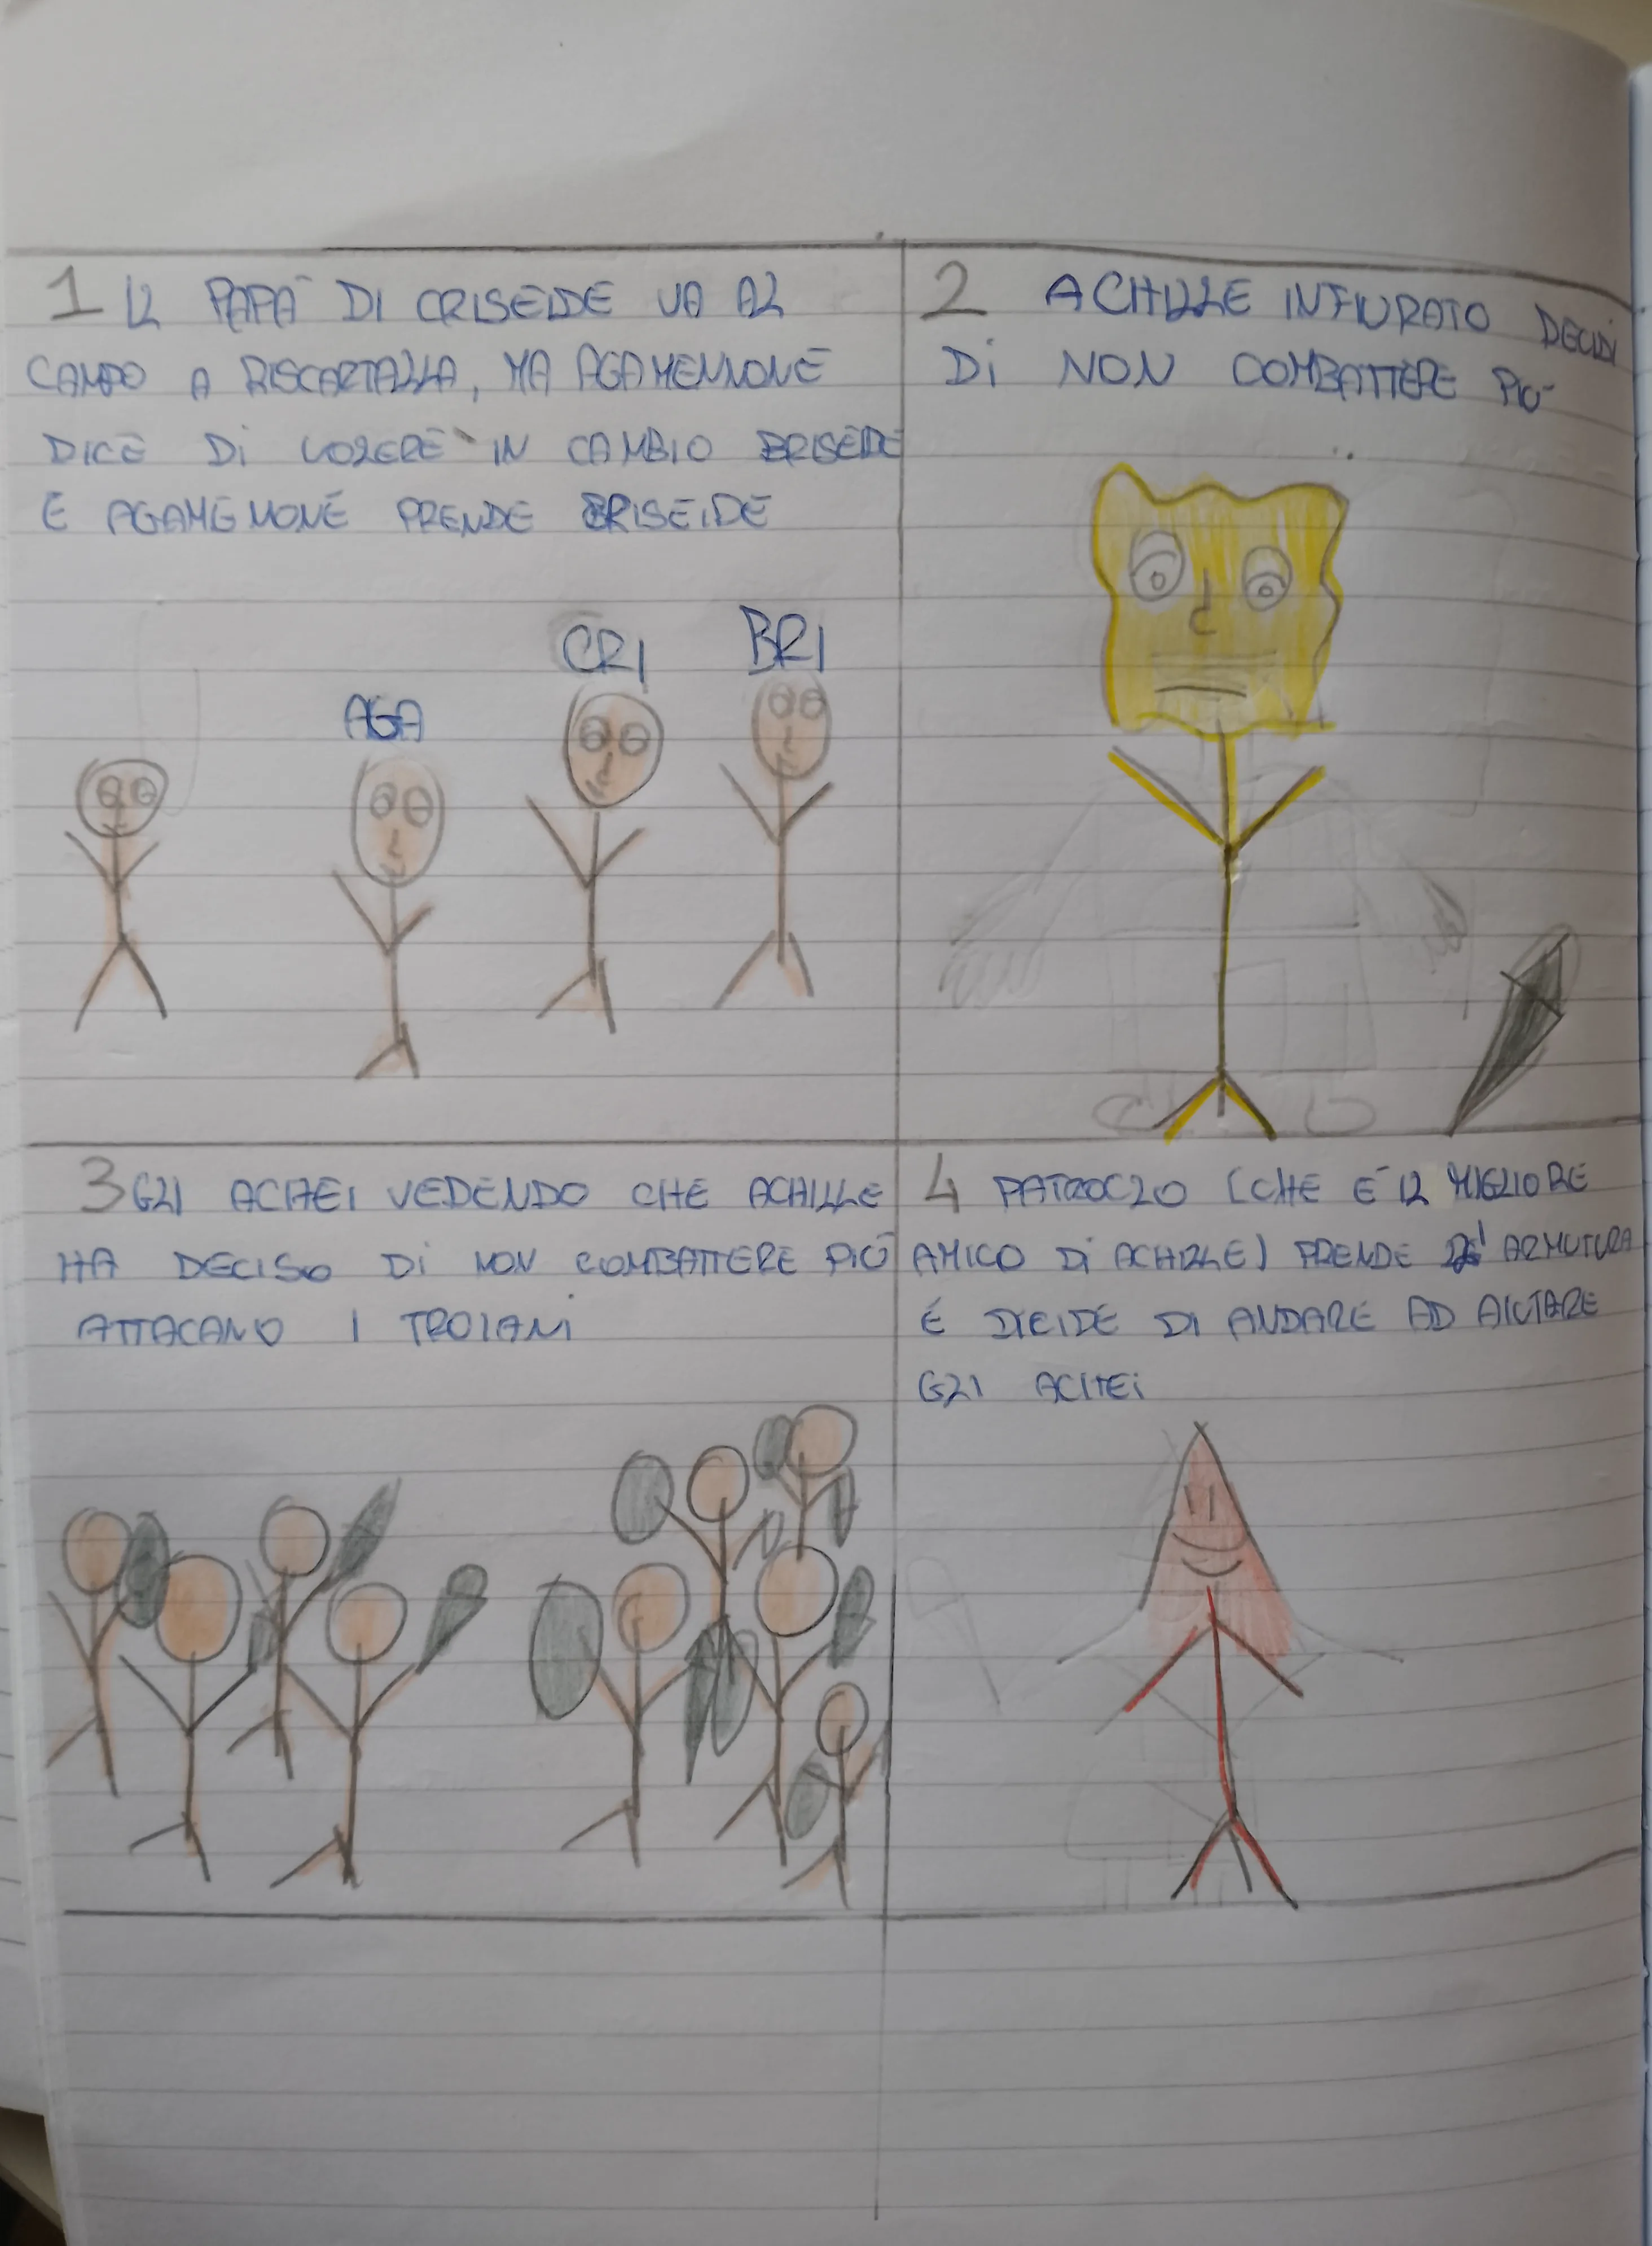 1 IL PAPÀ DI CRISEIDE VA AL
CAMPO A RISCARTALLA, MA AGAMENNONE
DICE DI VOLERE IN CAMBIO BRISEIDE
E AGAMENONE PRENDE BRISEIDE
AGA
CRI
BRI
2 ACHILLE INFIURATO DECIDI
DI NON COMBATTERE PIÙ
3 GLI ACHEI VEDENDO CHE ACHILLE
HA DECISO DI NON COMBATTERE PIÙ
ATTACANO I TROIANI
4 PATROCLO (CHE È IL MIGLIORE
AMICO DI ACHILLE) PRENDE ARMUTURA
E DICIDE DI ANDARE AD AIUTARE
GLI ACHEI